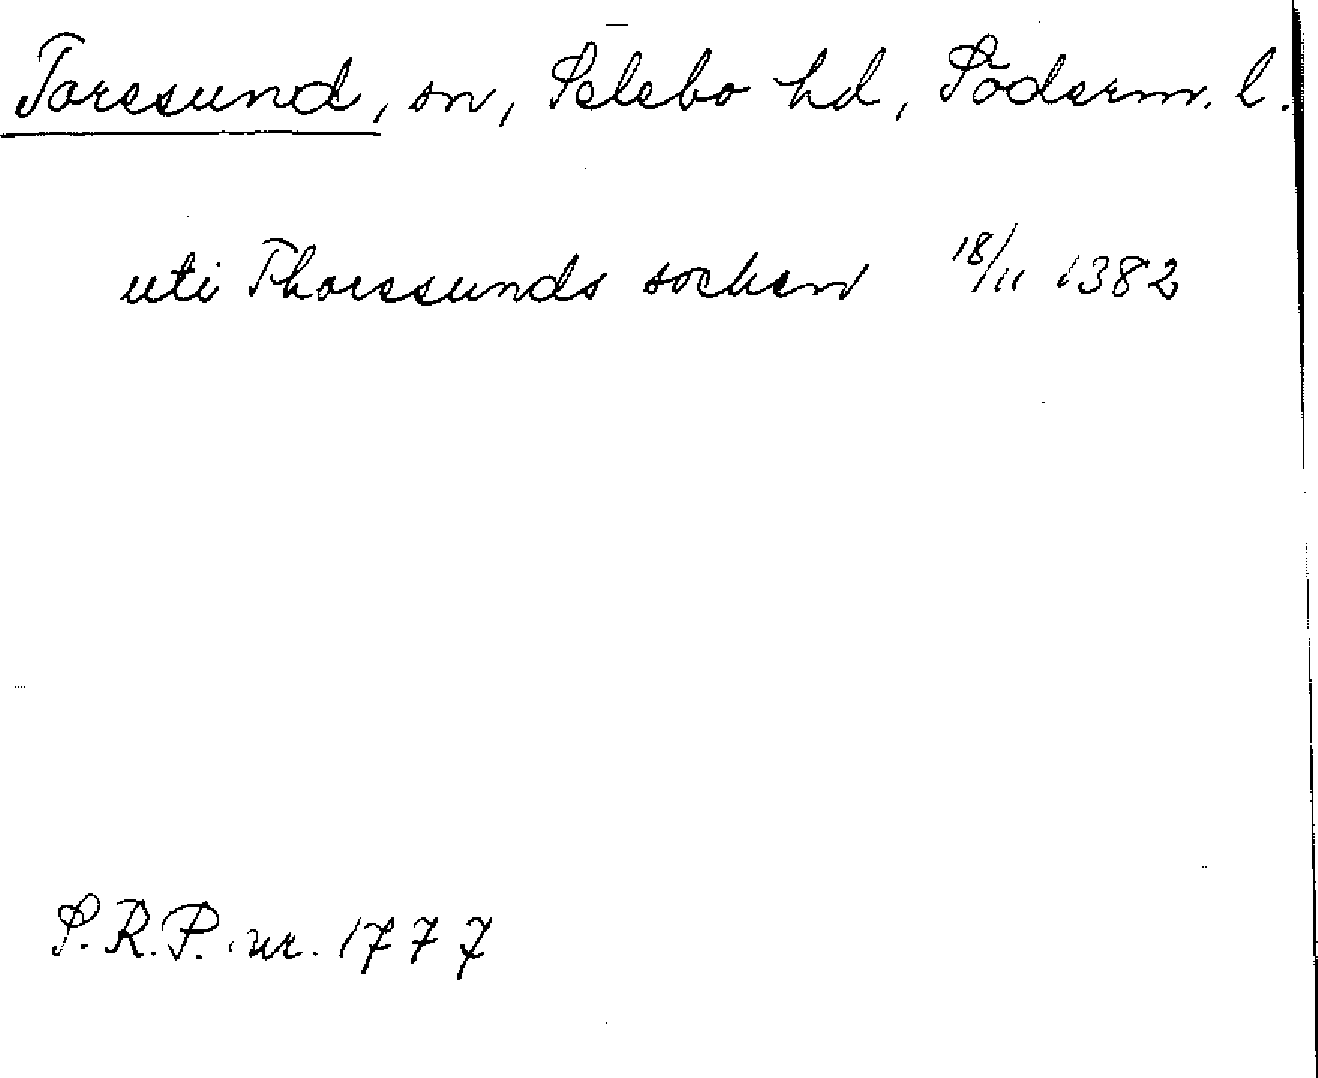 Toresund, sn, Selebo hd, Söderm. l.
uti Thoressunds sochen 18/11 1382
S.R.P. nr. 1777